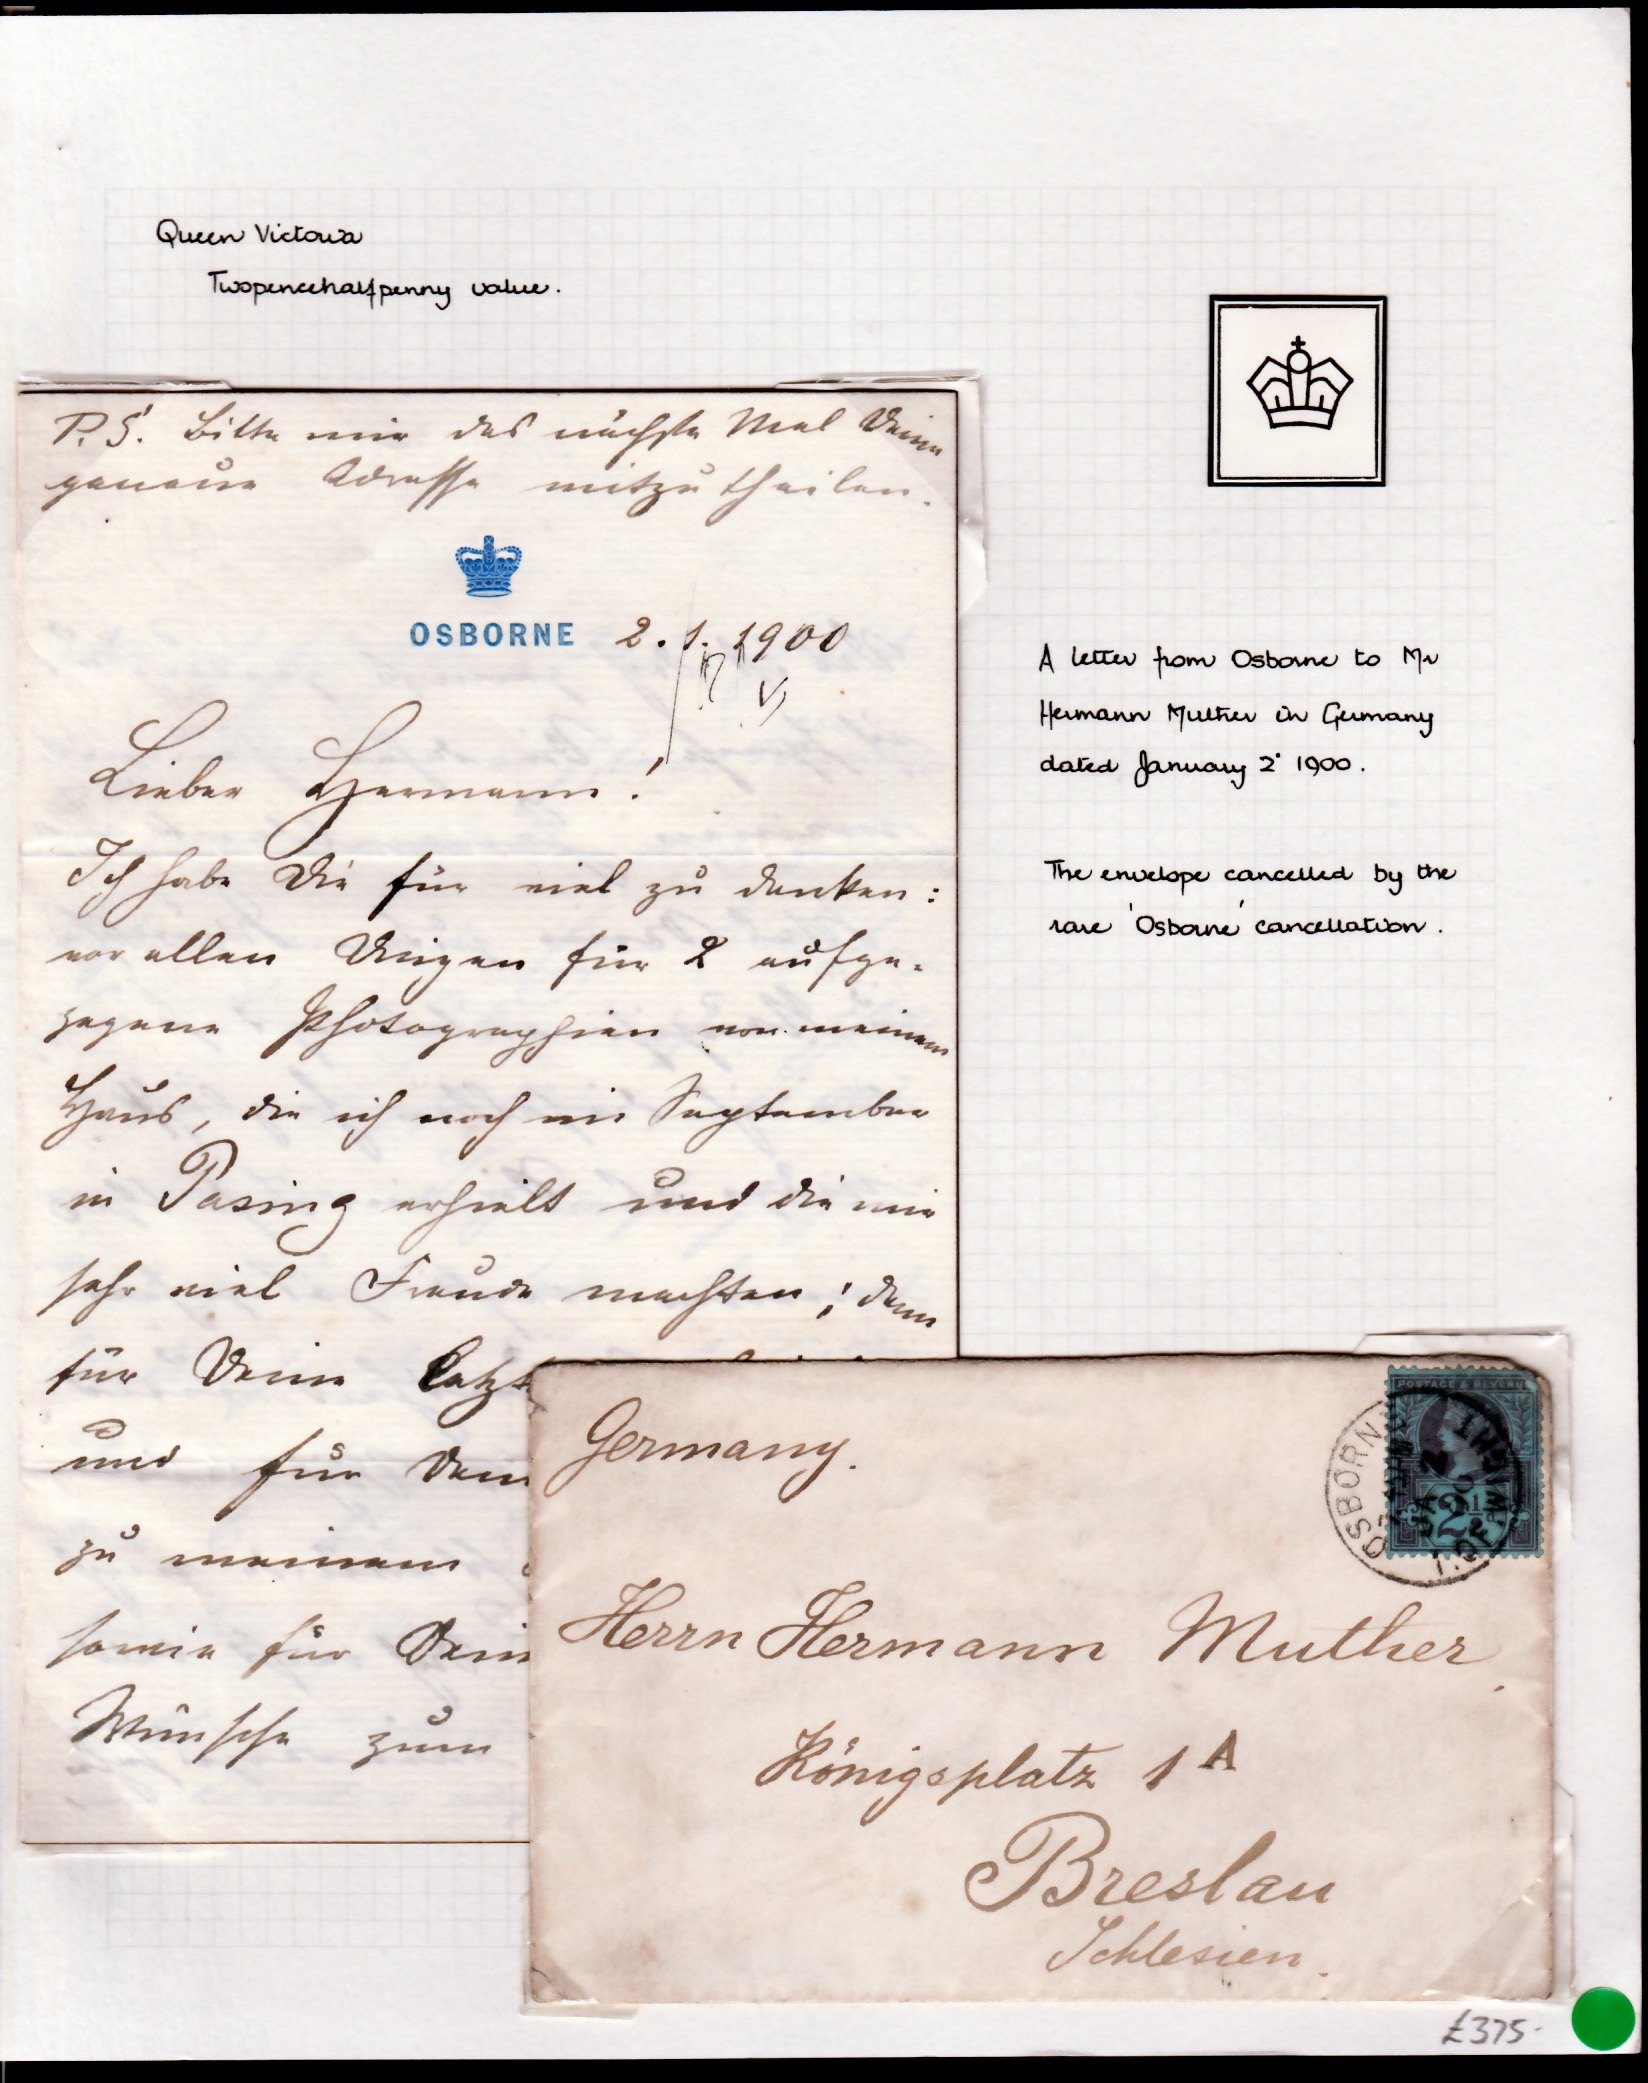 Queen Victoria
Twopencehalfpenny value.
P.S. Bitte mir das nächste Mal Deine
genaue Adresse mitzutheilen.
OSBORNE 2.1.1900
Lieber Hermann!
Ich habe Dir für viel zu danken:
vor allen Dingen für 2 aufge-
zogene Photographien von meinem
Haus, die ich noch im September
in Pasing erhielt und die mir
sehr viel Freude machten; dann
für Deine
und für
zu meinem
sowie für
Wünsche zum
A letter from Osborne to Mr
Hermann Muther in Germany
dated January 2 1900.
The envelope cancelled by the
rare 'Osborne' cancellation.
Germany.
POSTAGE & REVENUE
2½
OSBORNE
JA 2
I. OF WIGHT
Herrn Hermann Muther
Königsplatz 1 A
Breslau
Schlesien.
£375-